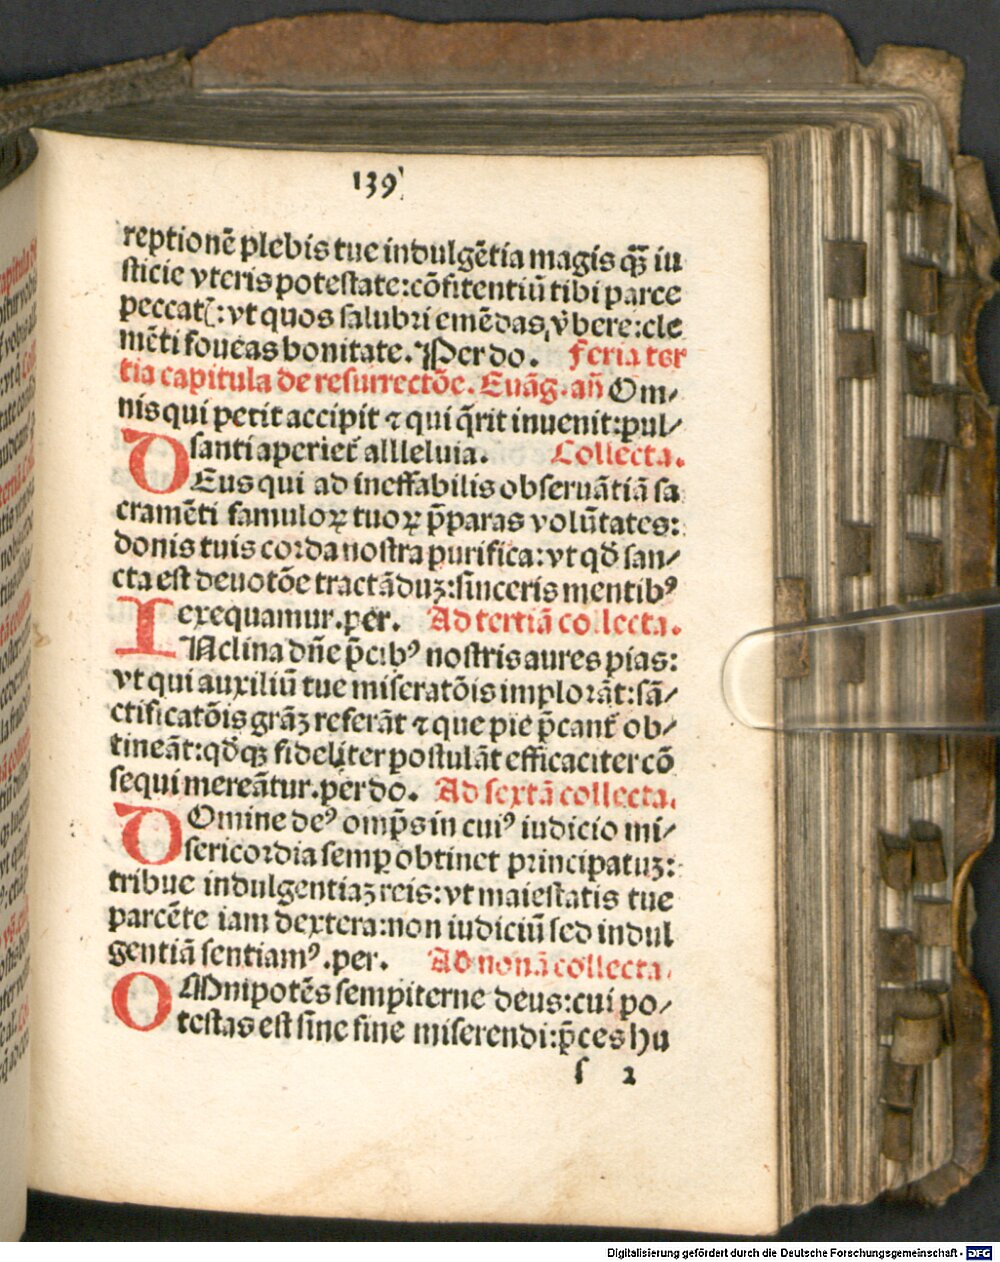 139
reptionē plebis tue indulgētia magis qȝ̄ iu
sticie vteris potestate:cōfitentiū tibi parce
peccatꝭ:vt quos salubri emēdas v̾bere:cle
mēti foueas bonitate. Per do. Feria ter
tia capitula de resurrectōe. Euāg. añ Om⸗
nis qui petit accipit ⁊ qui q̄rit inuenit:pul⸗
santi aperiet̉ allleluia. Collecta.
DEus qui ad ineffabilis obseruātiā sa
cramēti famuloꝝ tuoꝝ p̄paras volūtates:
donis tuis corda nostra purifica:vt qđ san⸗
cta est deuotōe tractāduȝ:sinceris mentibꝰ
exequamur.per. Ad tertiā collecta.
INclina dñe p̄cibꝰ nostris aures pias:
vt qui auxiliū tue miseratōis implorāt:sā⸗
ctificatōis grāȝ referāt ⁊ que pie p̄cant̉ ob⸗
tineāt:qđqȝ fideliter postulāt efficaciter cō
sequi mereātur.per do. Ad sextā collecta.
DOmine deꝰ omp̄s in cuiꝰ iudicio mi⸗
sericordia semꝑ obtinet principatuȝ:
tribue indulgentiaȝ reis:vt maiestatis tue
parcēte iam dextera:non iudiciū sed indul
gentiā sentiamꝰ.per. Ad nonā collecta.
OMnipotēs sempiterne deus:cui po⸗
testas est sine fine miserendi:p̄ces hu
s 2
Digitalisierung gefördert durch die Deutsche Forschungsgemeinschaft - DFG